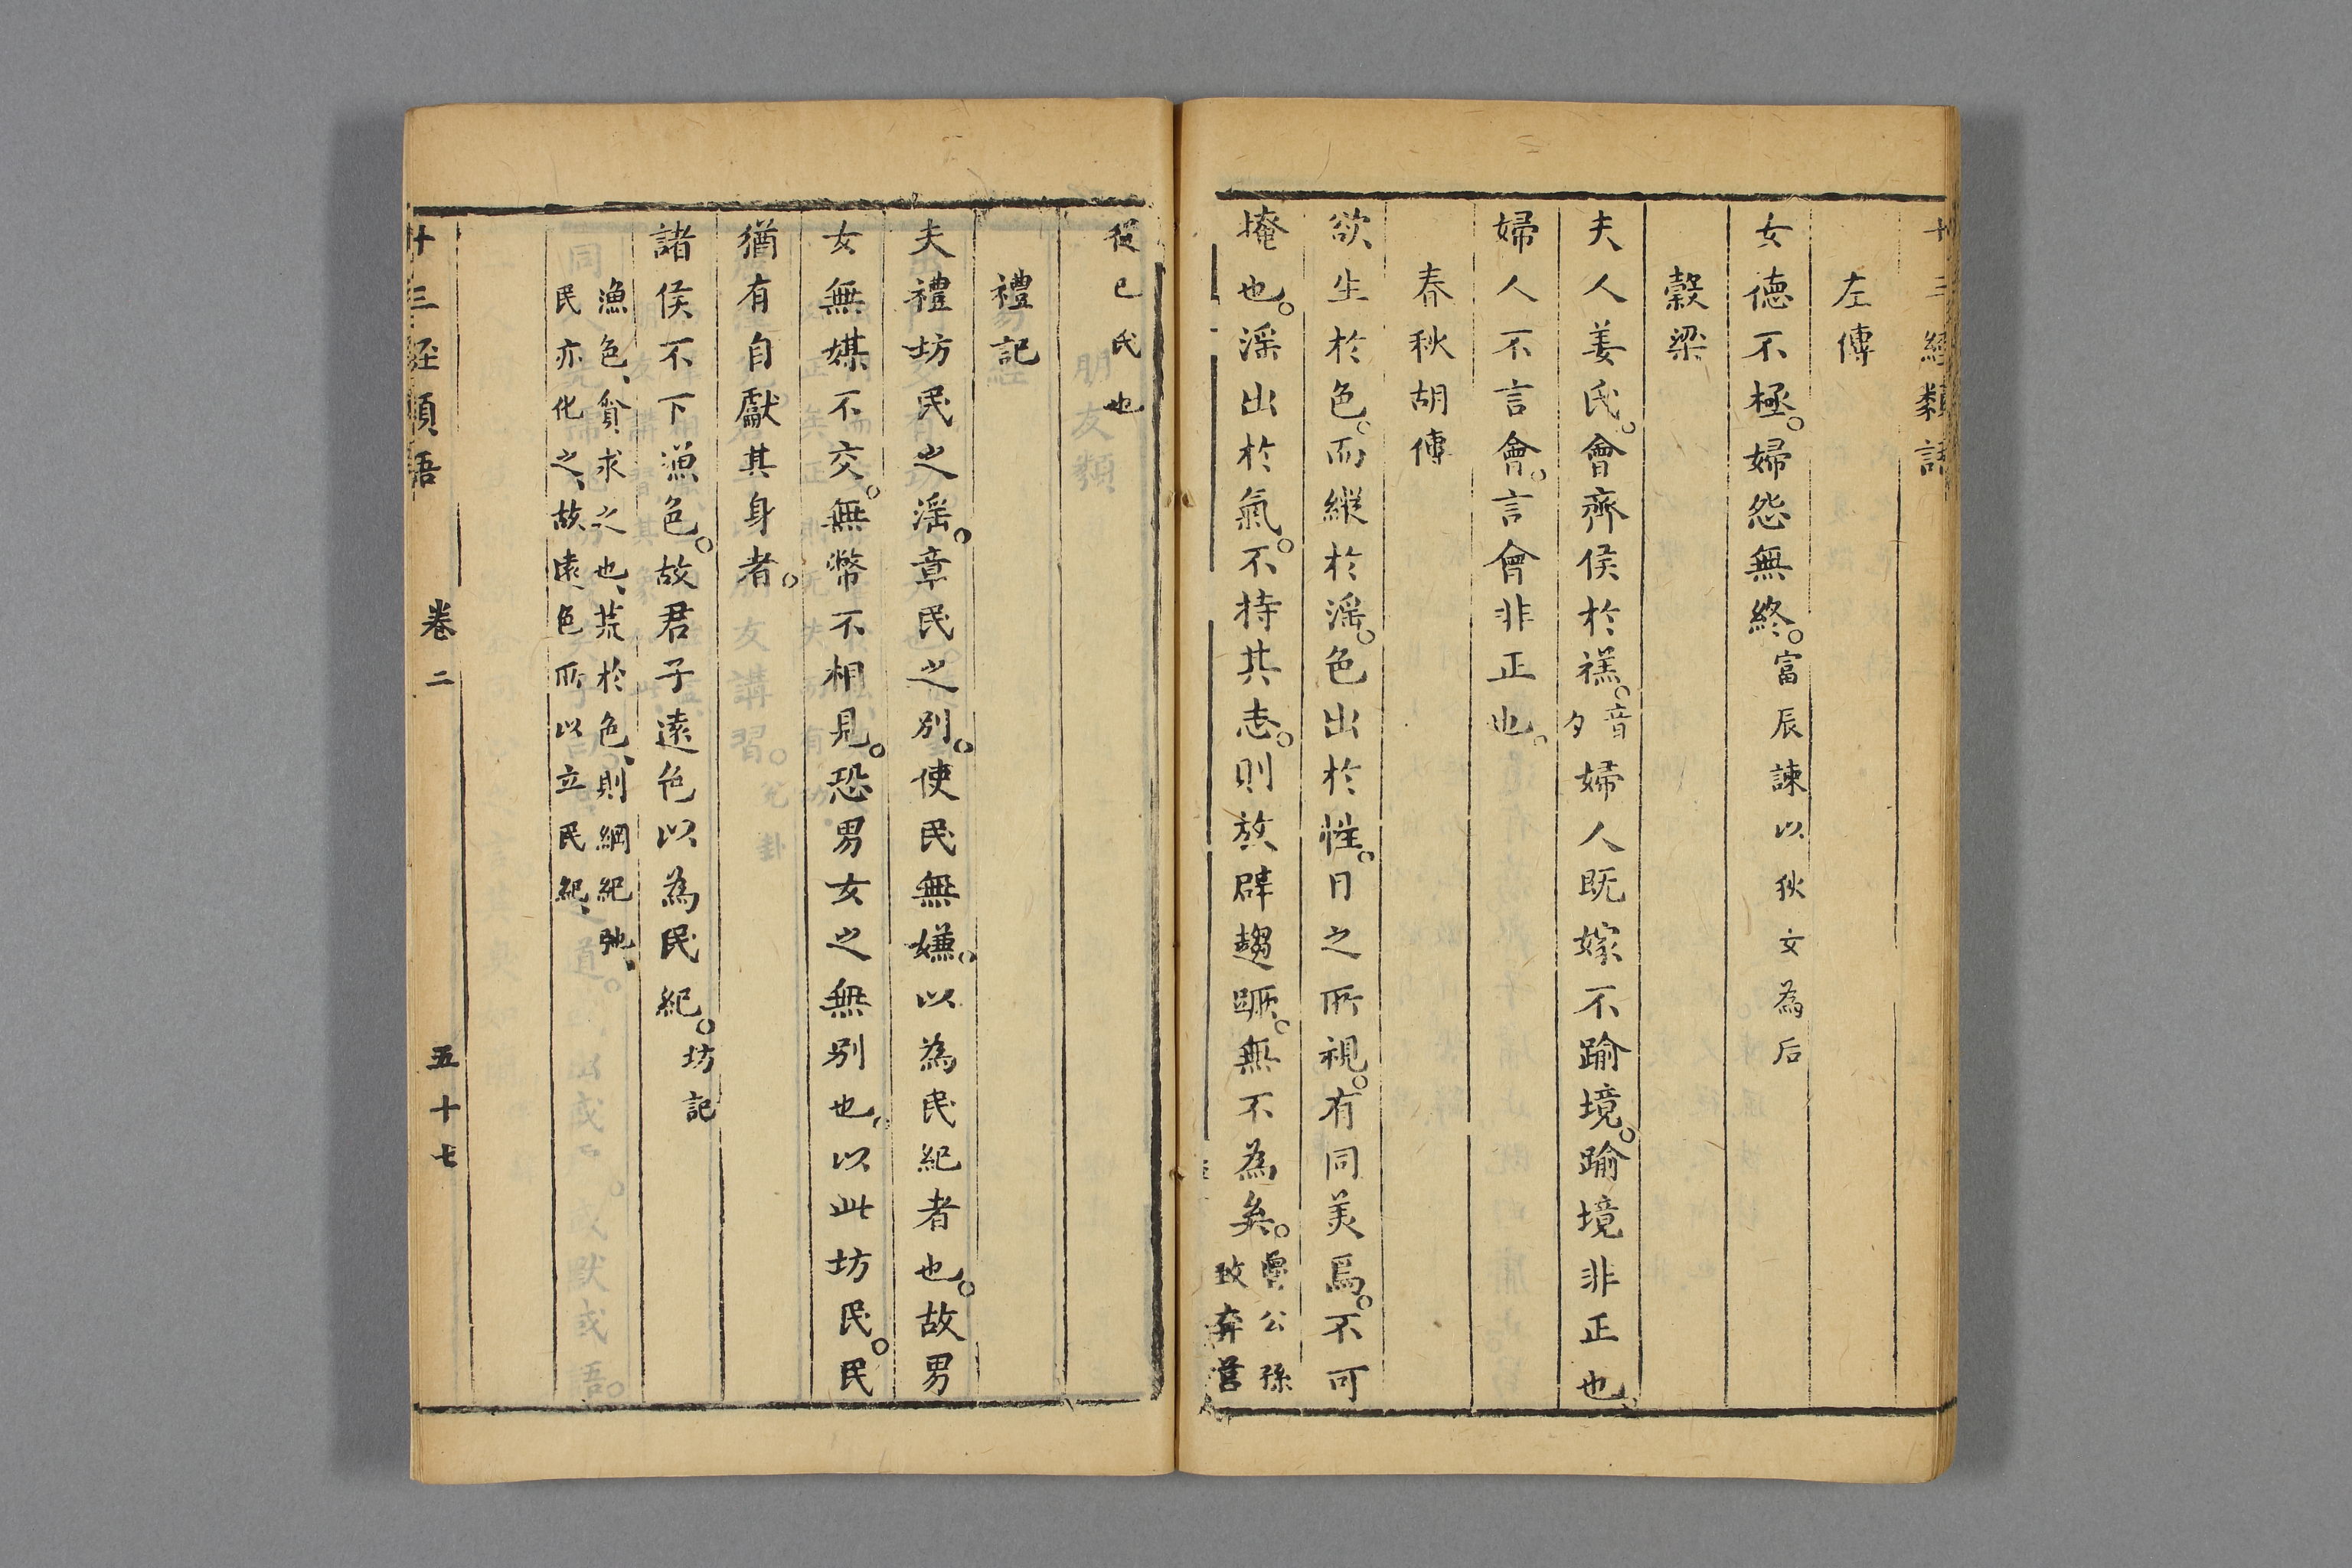 十三經類語
左傳
女德不極。婦怨無終。富辰諫以狄女為后
穀梁
夫人姜氏。會齊侯於禚。音夕婦人既嫁不踰境。踰境非正也。
婦人不言會。言會非正也。
春秋胡傳
欲生於色。而縱於淫。色出於性。目之所視。有同美焉。不可
掩也。淫出於氣。不持其志。則放辟趨蹶。無不為矣。公孫敖奔莒
從己氏也
禮記
夫禮坊民之淫。章民之別。使民無嫌。以為民紀者也。故男
女無媒不交。無幣不相見。恐男女之無別也。以此坊民。民
猶有自獻其身者。
諸侯不下漁色。故君子遠色以為民紀。坊記
漁色、貪求之也、荒於色、則綱紀弛、
民亦化之、故遠色所以立民紀、
十三經類語 卷二 五十七